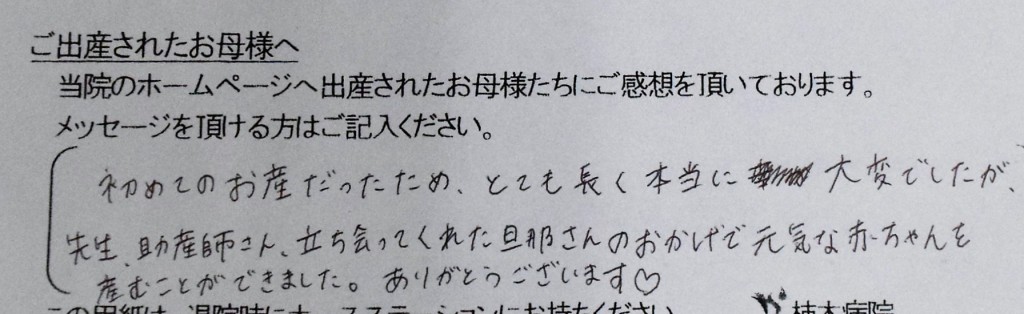 ご出産されたお母様へ
当院のホームページへ出産されたお母様たちにご感想を頂いております。
メッセージを頂ける方はご記入ください。
初めてのお産だったため、とても長く本当に大変でしたが、
先生、助産師さん、立ち会ってくれた旦那さんのおかげで元気な赤ちゃんを
産むことができました。ありがとうございます♡
この用紙は、退院時にナースステーションにお持ちください 柿木病院